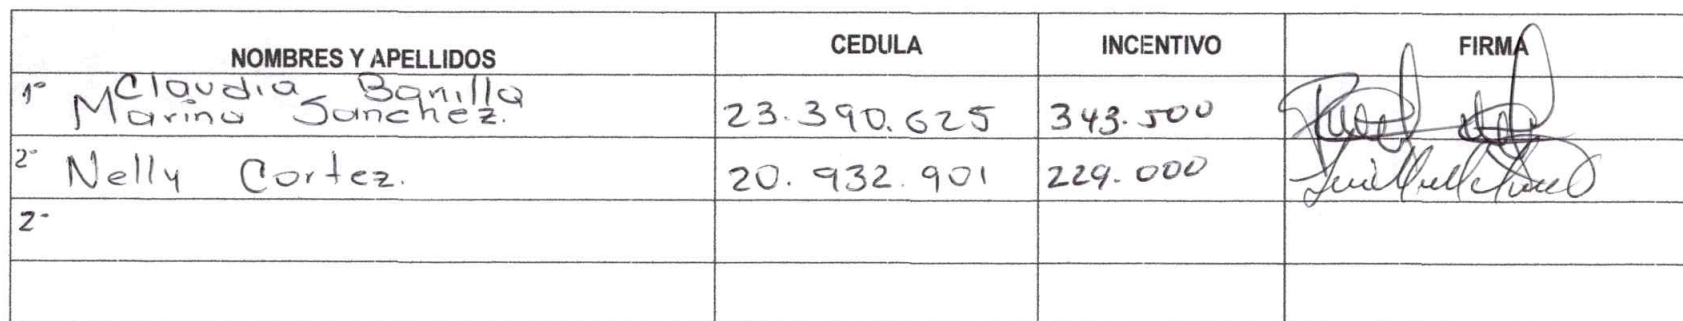 NOMBRES Y APELLIDOS CEDULA INCENTIVO FIRMA
1° Claudia Banilla
Marina Sanchez. 23.390.625 343.500
2° Nelly Cortez. 20.932.901 229.000
2-